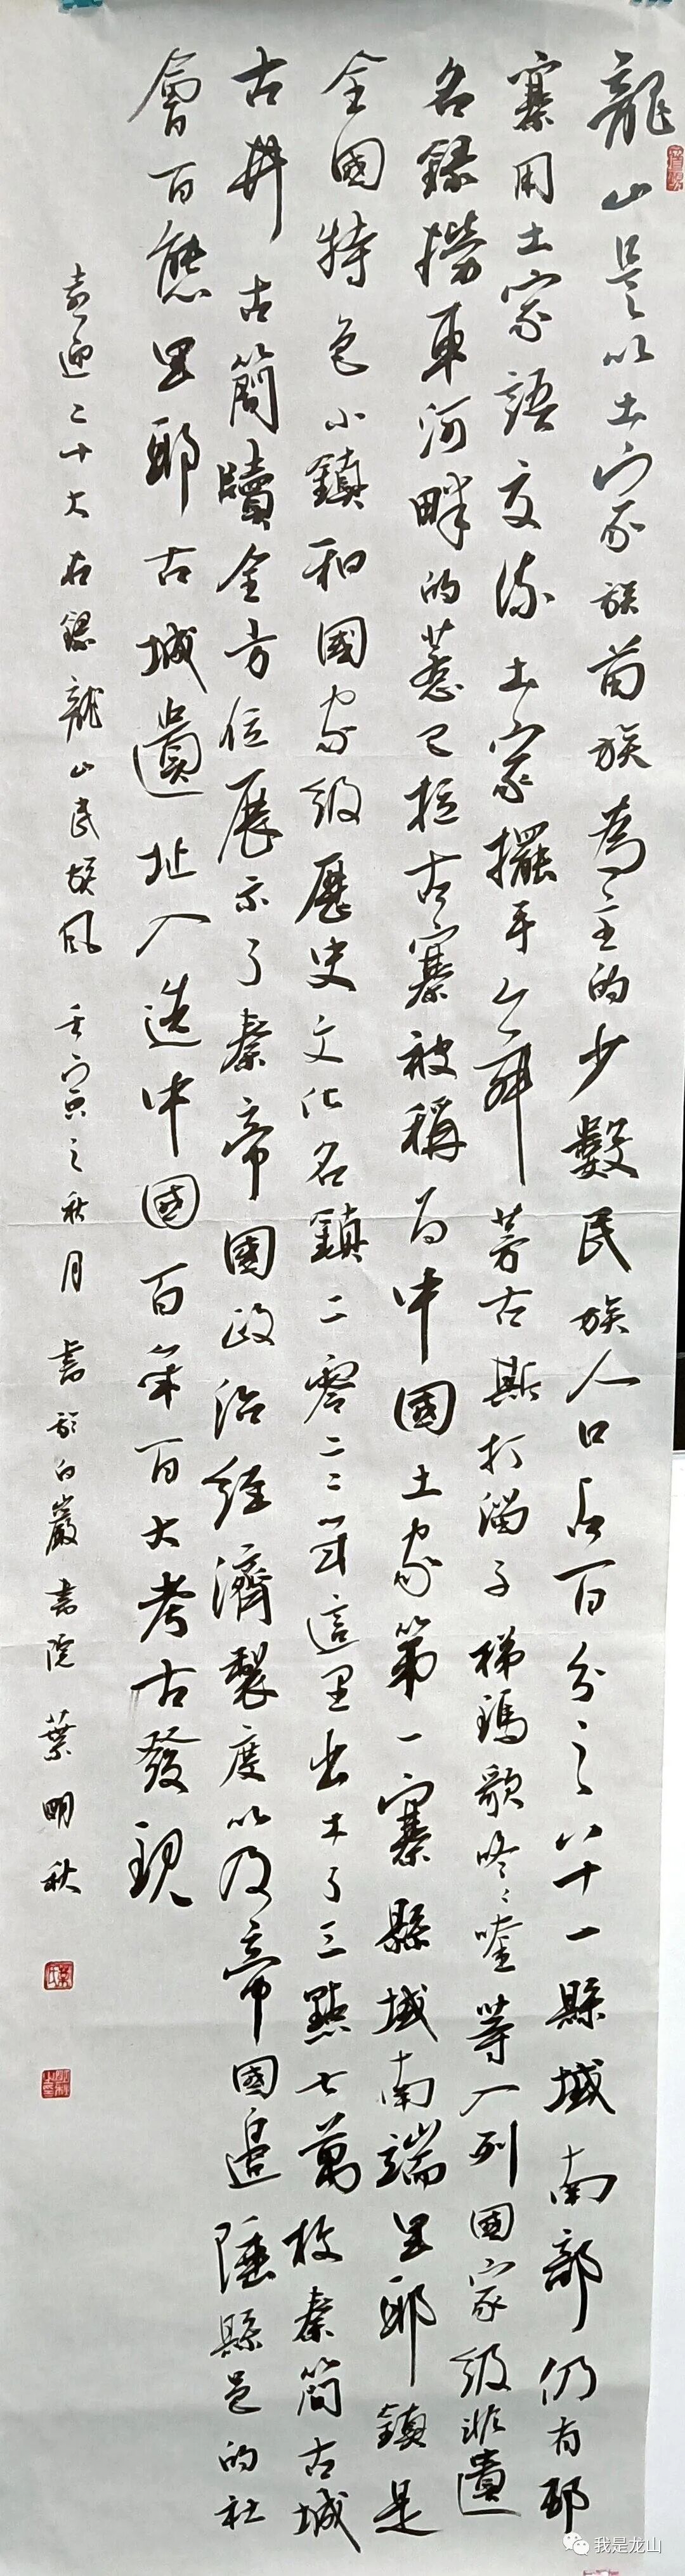 龍山是以土家族苗族為主的少數民族人口占百分之八十一縣域南部仍有部
寨用土家語交流土家擺手舞茅古斯打溜子梯瑪歌咚咚喹等入列國家級非遺
名錄撈車河畔的惹巴拉古寨被稱為中國土家第一寨縣域南端里耶鎮是
全國特色小鎮和國家級歷史文化名鎮二零零二年這里出土了三點七萬枚秦簡古城
古井古簡牘全方位展示了秦帝國政治經濟製度以及帝國邊陲縣邑的社
會百態里耶古城遺址入選中國百年百大考古發現
喜迎二十大右錄龍山民族風 壬寅之秋月 書於白巖書院 葉明秋
我是龙山